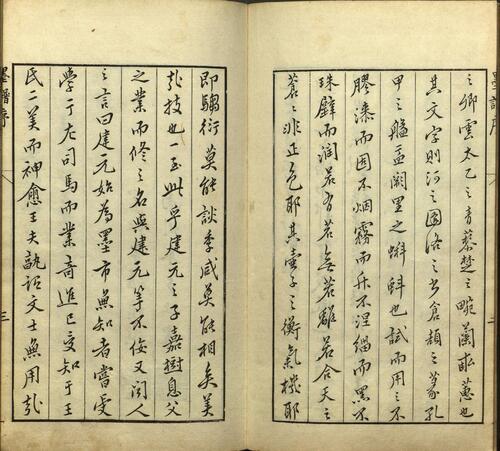 墨譜序
之卿雲太乙之青藜楚之畹蘭畝蕙也
其文字則河之圖洛之書倉頡之篆孔
甲之盤盂闕里之蝌蚪也試而用之不
膠漆而固不烟霧而升不涅緇而黑不
珠璧而润若有若無若離若合天之
蒼蒼非正色耶其壺子之衡氣機耶
三
即騶衍莫能談季咸莫能相矣美
哉技也一至此乎建元之子嘉樹息父
之業而修之名與建元等不佞又闻人
之言曰建元始為墨市無知者嘗受
學于左司馬而業奇進已受知于王
氏二美而神愈王夫孰謂文士無用哉
墨譜序
三